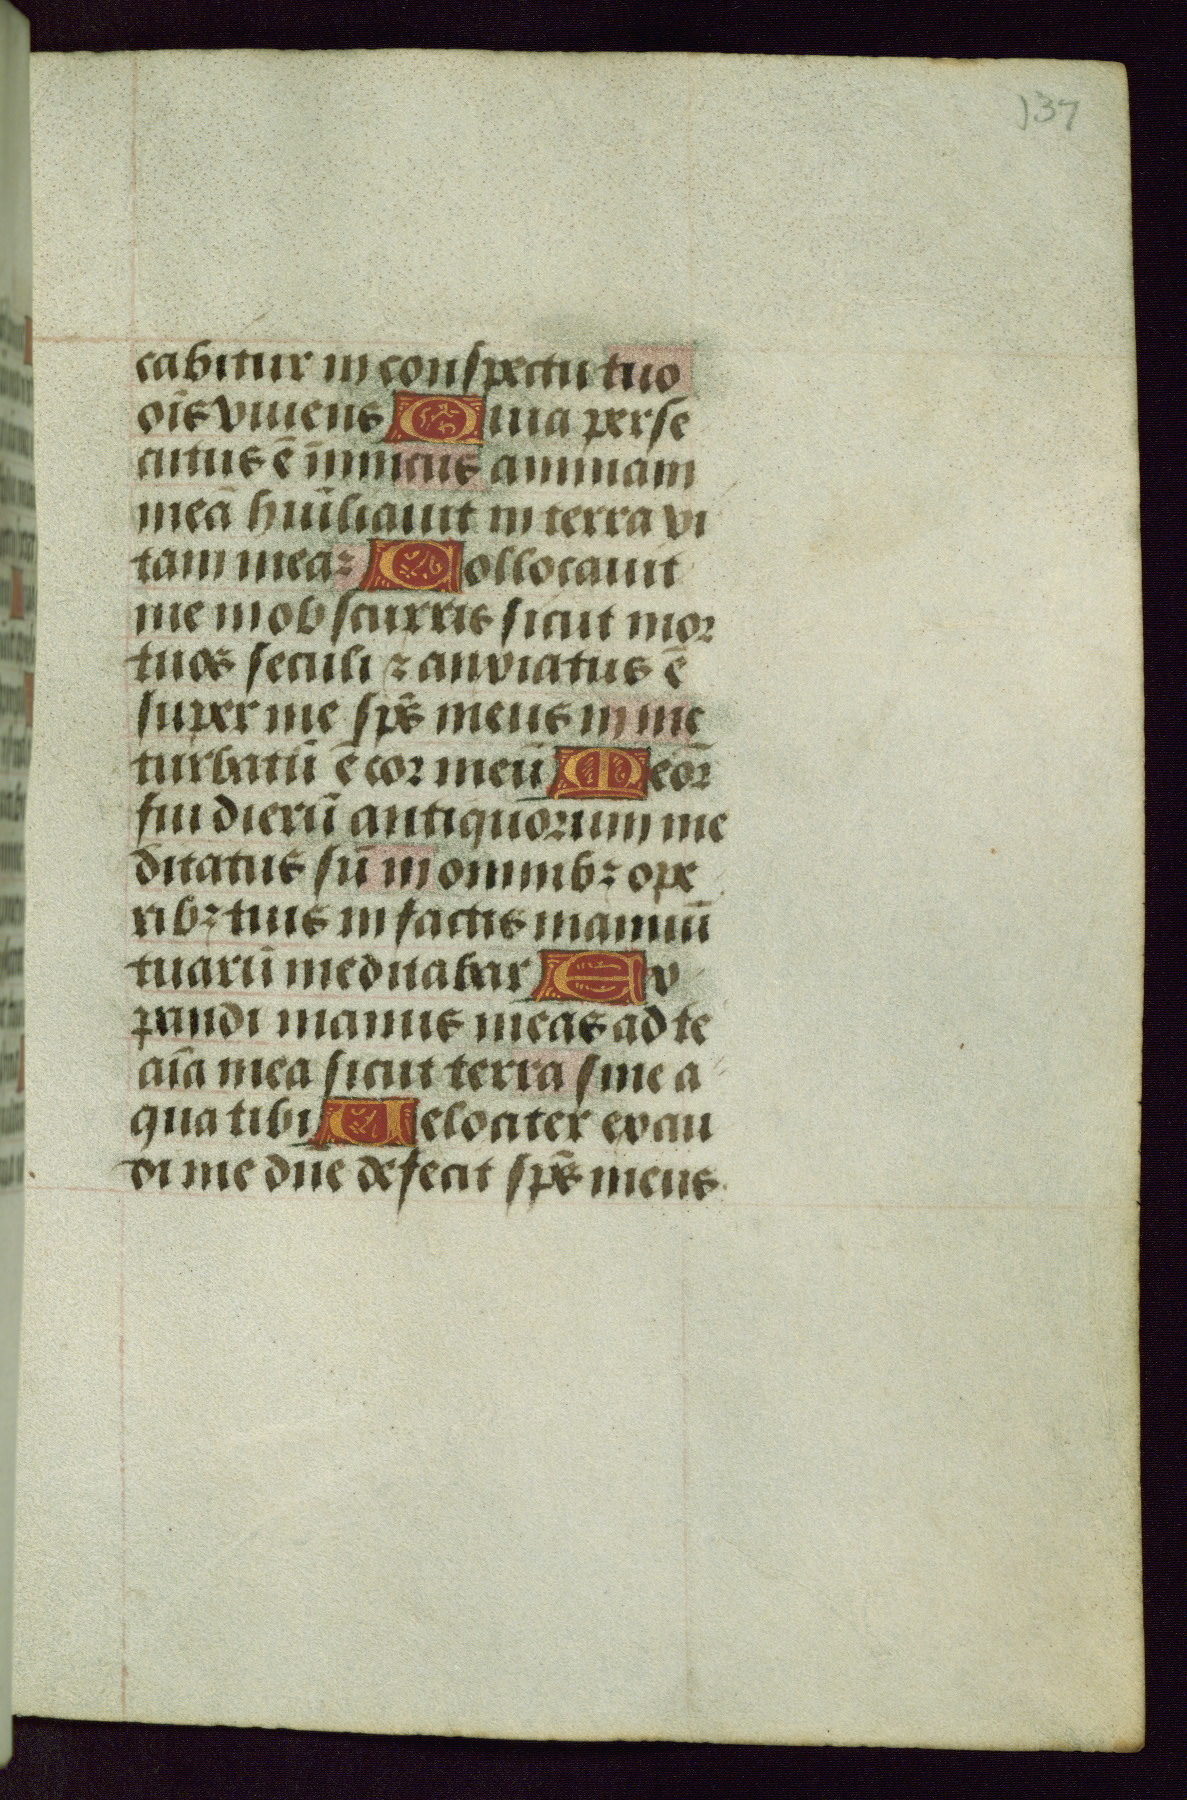 137
cabitur in conspectu tuo
oīs viuens Quia perse
cutus ē īimicus animam
meā huīliauit in terra vi
tam meaꝫ Collocauit
me in obscurris sicut mor
tuos seculi ⁊ anxiatus ē
super me sp̄s meus in me
turbatū ē cor meū Meōr
fui dierū antiquorum me
ditatus sū in omnibꝫ ope
ribꝫ tuis in factis manuū
tuarū meditabar Ex
pandi manus meas ad te
aīa mea sicut terra sine a
qua tibi Velociter exau
di me dn̄e defecit sp̄s meus